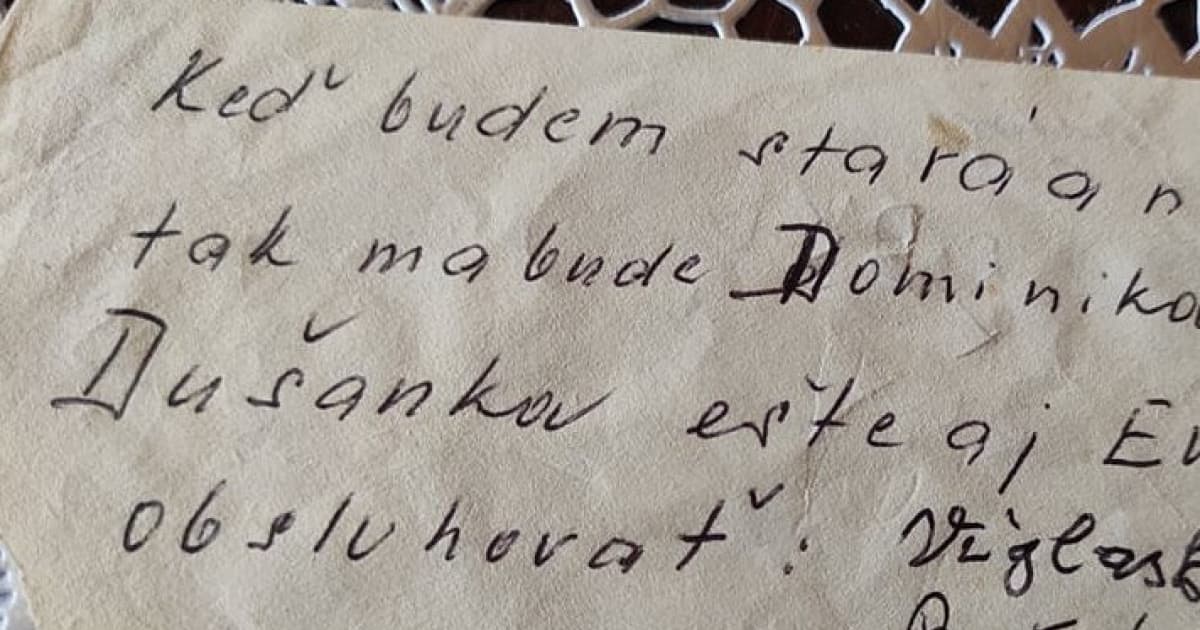 Keď budem stará a n
tak ma bude Dominika
Dušanka ešte aj Ev
obsluhovať: